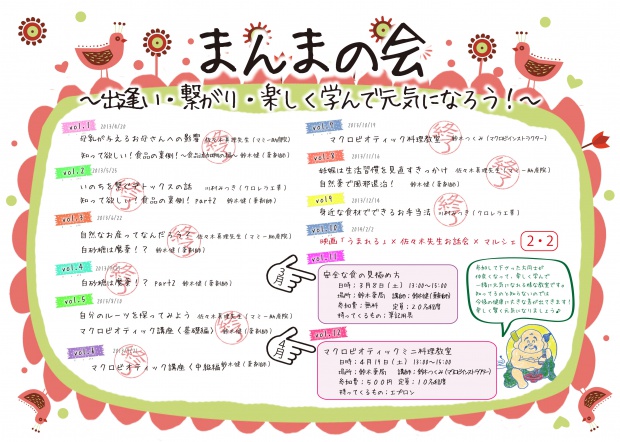 まんまの会
〜出逢い・繋がり・楽しく学んで元気になろう！〜
vol.1 2013/4/20
母乳が与えるお母さんへの影響 佐々木真理先生(マミーAN産院)
知って欲しい！食品の裏側！ 鈴木健(薬剤師)
vol.2 2013/5/25
いのちを繋ぐデトックスの話 川村みつき(クロレラ工業)
知って欲しい！食品の裏側！part2 鈴木健(薬剤師)
2013/6/22
自然なお産ってなんだろう？ 佐々木真理先生(マミーAN産院)
白砂糖は魔薬！？ 鈴木健(薬剤師)
vol.4
白砂糖は魔薬！？ part2 鈴木健(薬剤師)
vol.5
自分のルーツを探ってみよう 佐々木真理先生(マミーAN産院)
マクロビオティック講座(基礎編) 鈴木健(薬剤師)
マクロビオティック講座(中級編) 鈴木健(薬剤師)
2013/10/19
マクロビオティック料理教室 鈴木つくみ(マクロビインストラクター)
2013/11/16
妊娠は生活習慣を見直すきっかけ 佐々木真理先生(マミーAN産院)
自然薬で風邪退治！ 鈴木健(薬剤師)
vol.9 2013/12/14
身近な食材でできるお手当法 川村みつき(クロレラ工業)
2014/2/2
映画「うまれる」×佐々木先生お話会×マルシェ 2・2
vol.11
3月
安全な食の見極め方
日時：3月8日(土) 13:00〜15:00
場所：鈴木薬局 講師：鈴木健(薬剤師)
参加費：無料 定員：20名程度
持ってくるもの：筆記用具
vol.12
4月
マクロビオティックミニ料理教室
日時：4月19日(土) 13:00〜15:00
場所：鈴木薬局 講師：鈴木つくみ(マクロビインストラクター)
参加費：500円 定員：10名程度
持ってくるもの：エプロン
参加して下さった方同士が
仲良くなって、楽しく学んで
一緒に元気になれる様な教室です。
知ってるのと知らないのでは
今後の健康に大きな差が出てきます！
楽しく賢く元気になりましょう♪